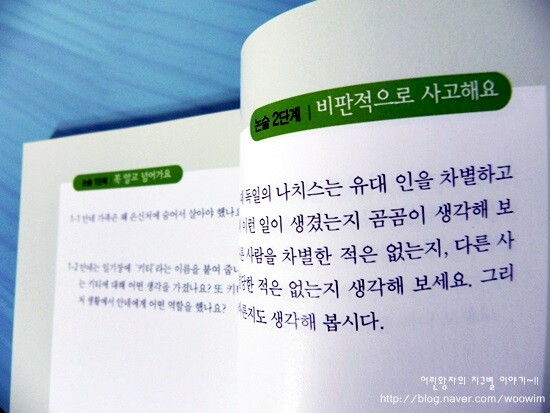 논술 1단계 | 꼭 알고 넘어가요
1-1 안네 가족은 왜 은신처에 숨어서 살아야 했나요
1-2 안네는 일기장에 '키티'라는 이름을 붙여
는 키티에 대해 어떤 생각을 가졌나요? 또 키
처 생활에서 안네에게 어떤 역할을 했나요?
논술 2단계 | 비판적으로 사고해요
독일의 나치스는 유대 인을 차별하고
이런 일이 생겼는지 곰곰이 생각해 보
사람을 차별한 적은 없는지, 다른 사
당한 적은 없는지 생각해 보세요. 그리
른지도 생각해 봅시다.
어린왕자의 지구별 이야기~!!
http://blog.naver.com/woowim